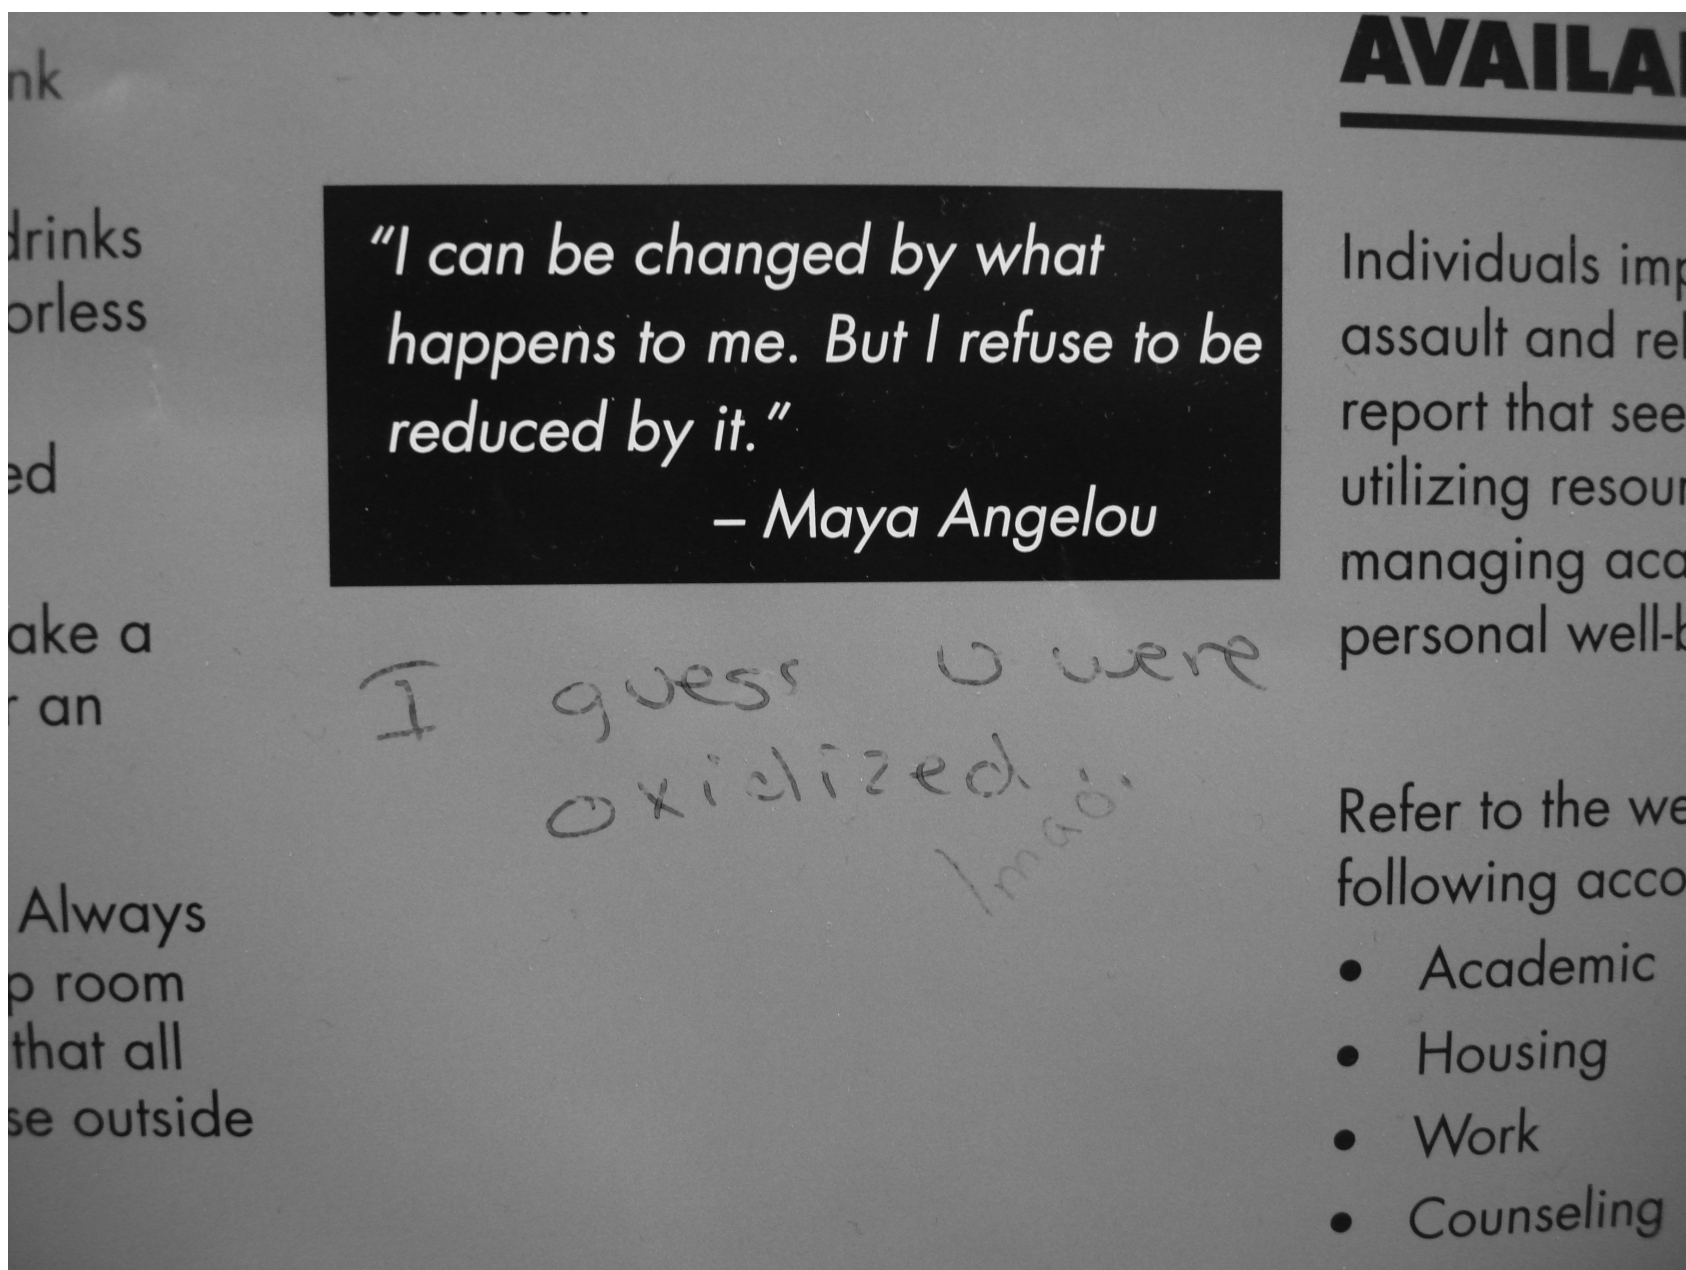 nk
drinks
orless
ed
ake a
r an
Always
p room
that all
se outside
"I can be changed by what
happens to me. But I refuse to be
reduced by it."
– Maya Angelou
I guess u were
oxidized
lmao
AVAILA
Individuals imp
assault and rel
report that see
utilizing resour
managing aca
personal well-b
Refer to the we
following acco
• Academic
• Housing
• Work
• Counseling